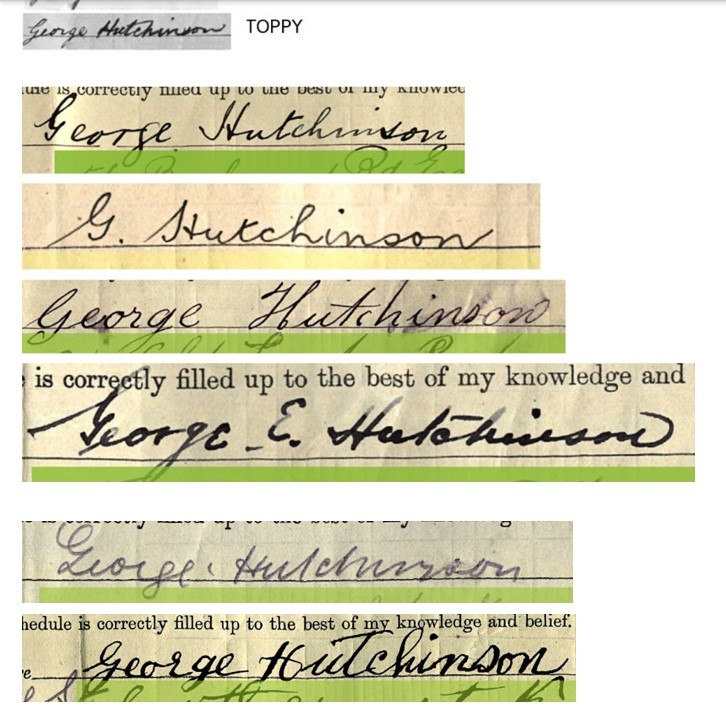 George Hutchinson TOPPY
ule is correctly filled up to the best of my knowled
George Hutchinson
G. Hutchinson
George Hutchinson
is correctly filled up to the best of my knowledge and
George E. Hutchinson
George Hutchinson
hedule is correctly filled up to the best of my knowledge and belief.
George Hutchinson